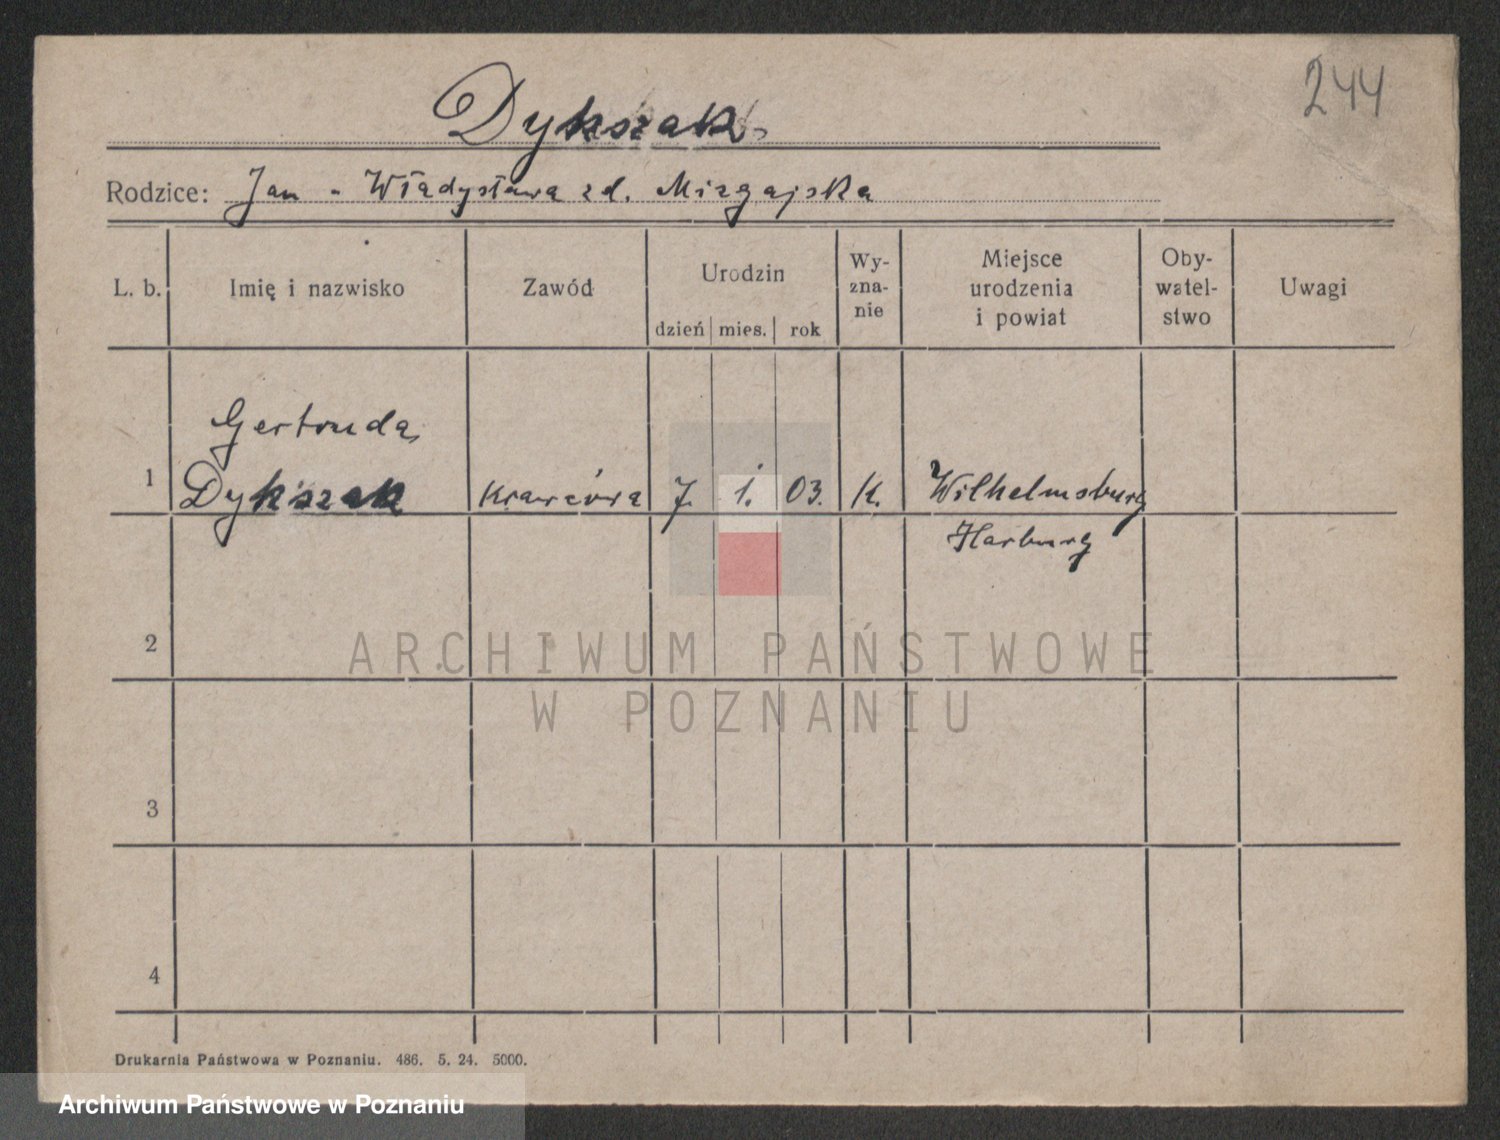 244
Dykszak
Rodzice: Jan - Władysława zd. Mizgajska
L. b.
Imię i nazwisko
Zawód
Urodzin
dzień mies. rok
Wy-
zna-
nie
Miejsce
urodzenia
i powiat
Oby-
watel-
stwo
Uwagi
Gertruda
1 Dykszak krawcowa 7. 1. 03. K. Wilhelmsburg
Harburg
2
ARCHIWUM PAŃSTWOWE
W POZNANIU
3
4
Drukarnia Państwowa w Poznaniu. 486. 5. 24. 5000.
Archiwum Państwowe w Poznaniu